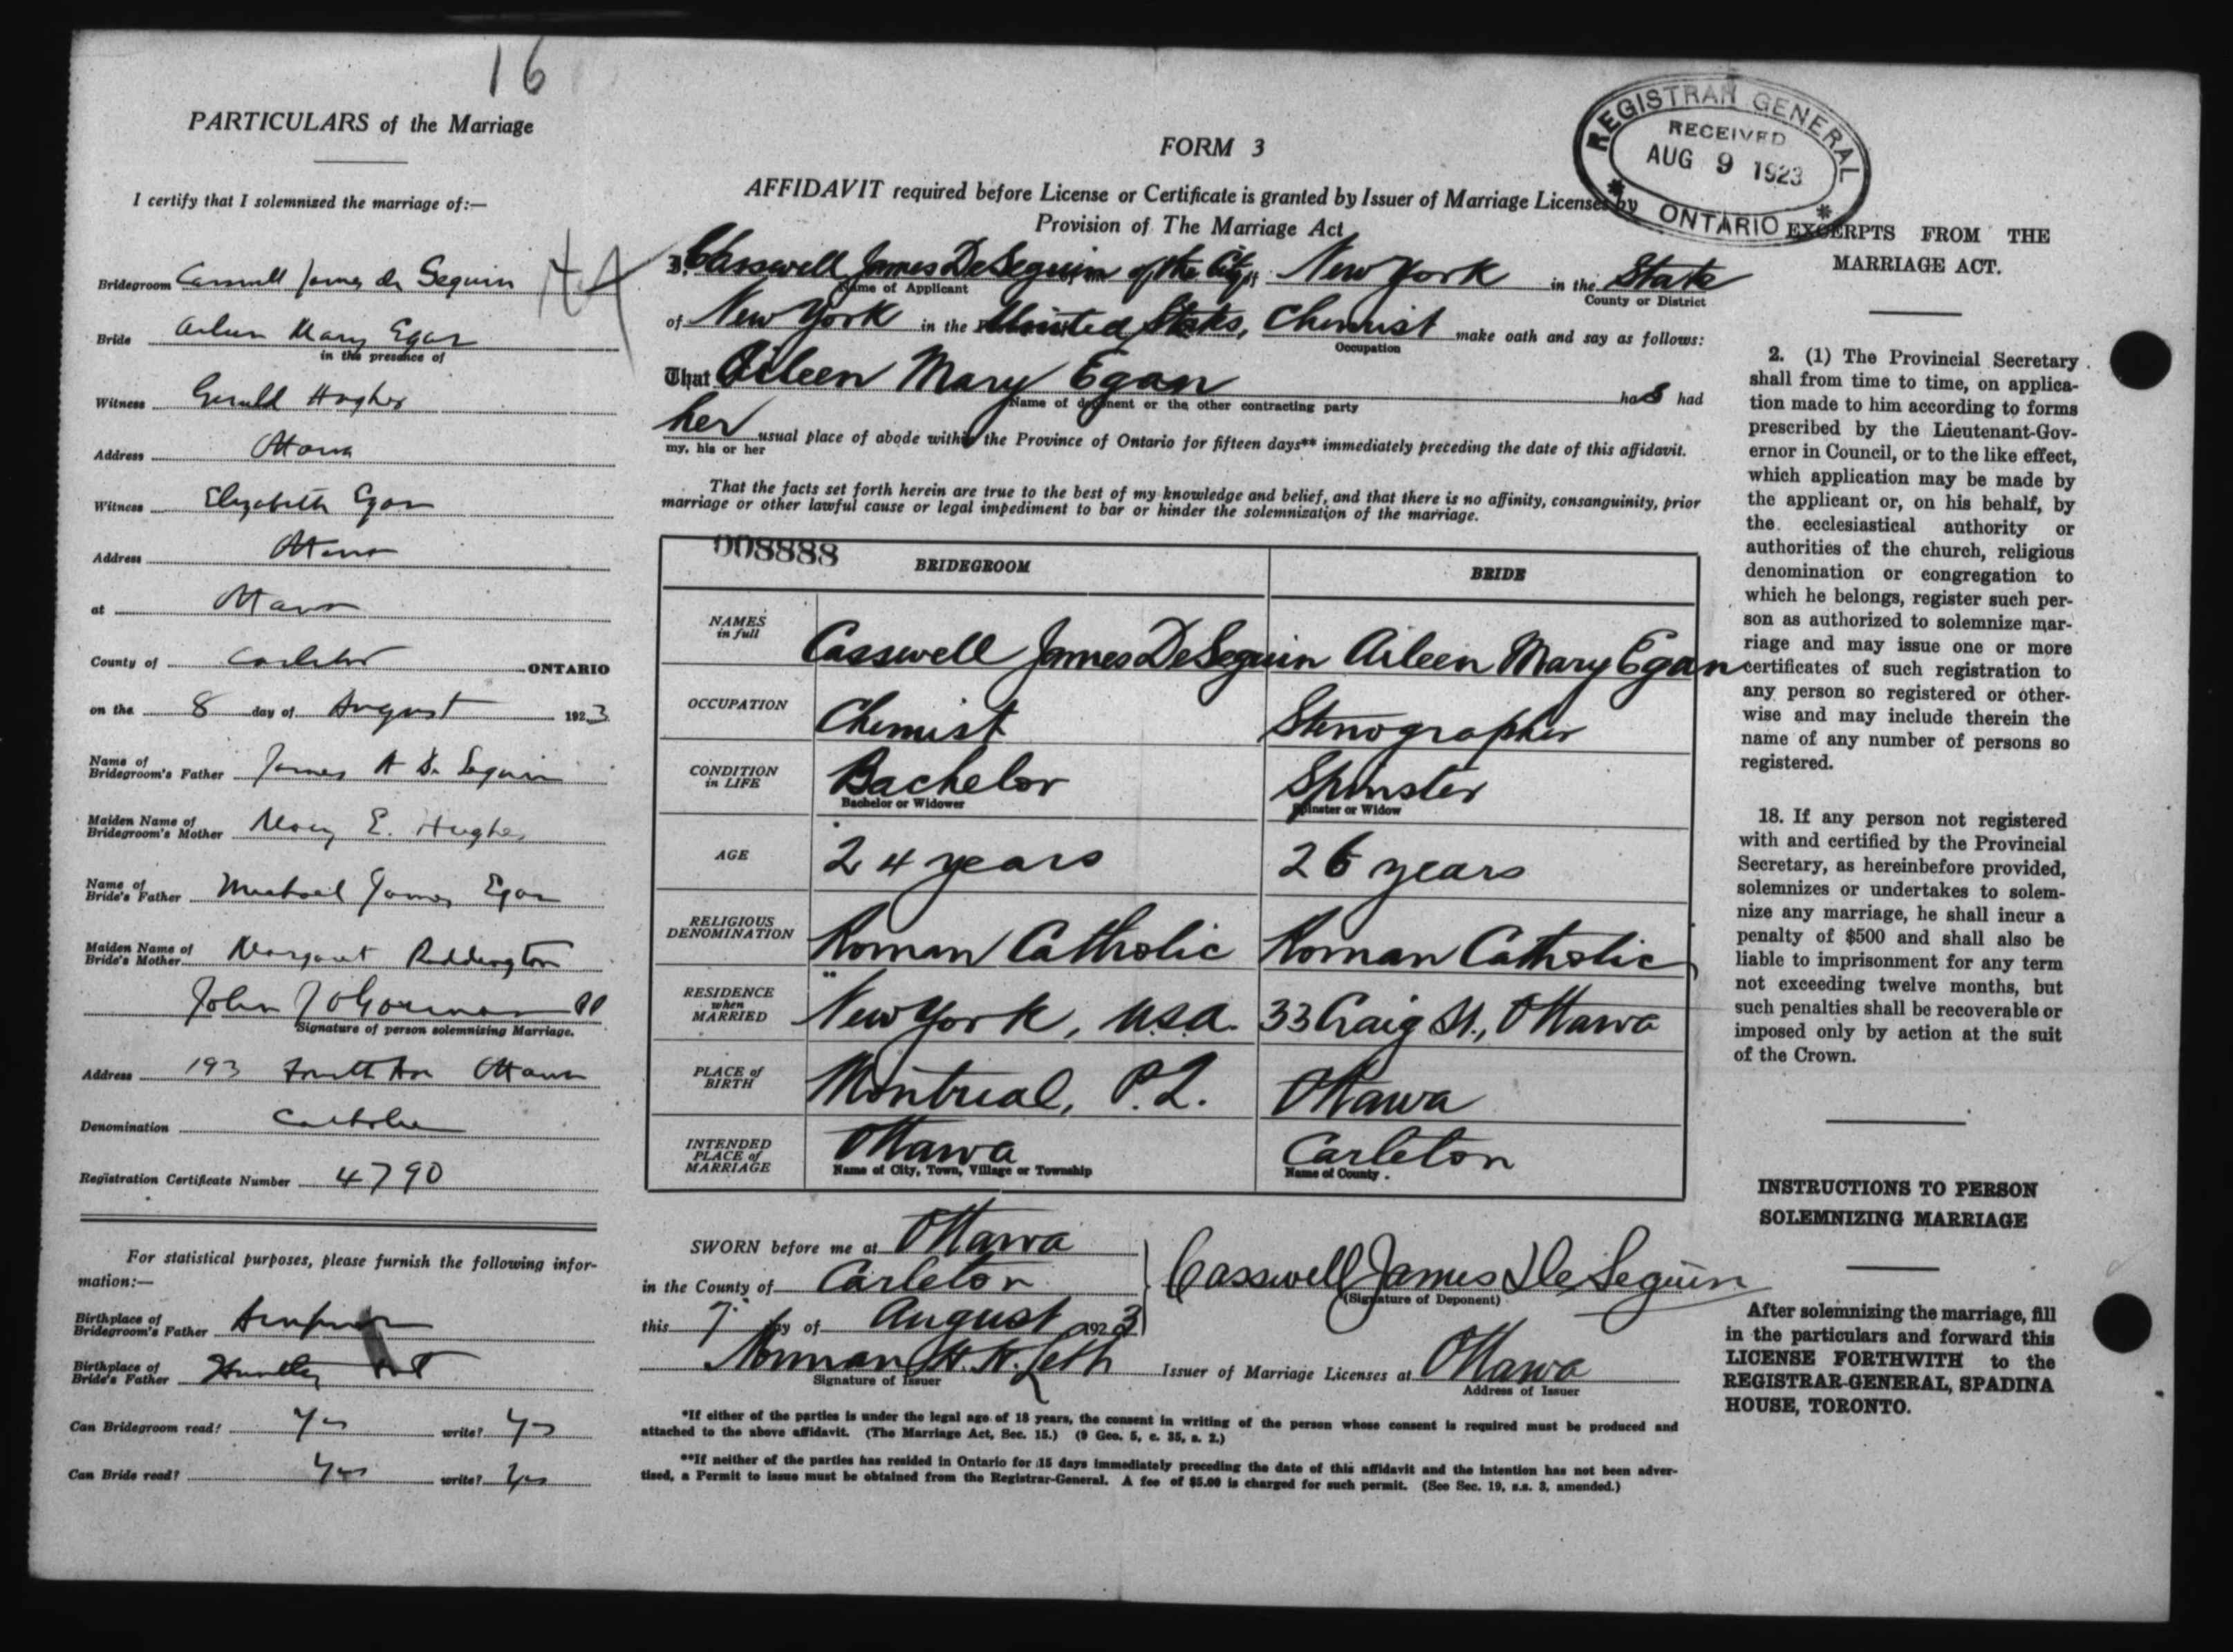 16
PARTICULARS of the Marriage
I certify that I solemnized the marriage of:—
Bridegroom Casswell James de Seguin
Bride Aileen Mary Egan
in the presence of
Witness Gerald Hughes
Address Ottawa
Witness Elizabeth Egan
Address Ottawa
at Ottawa
County of Carleton ONTARIO
on the 8 day of August 1923
Name of
Bridegroom's Father James A De Seguin
Maiden Name of
Bridegroom's Mother Mary E. Hughes
Name of
Bride's Father Michael James Egan
Maiden Name of
Bride's Mother Margaret Reddington
John J O'Gorman PP
Signature of person solemnizing Marriage.
Address 193 Fourth Ave Ottawa
Denomination Catholic
Registration Certificate Number 4790
For statistical purposes, please furnish the following infor-
mation:—
Birthplace of
Bridegroom's Father
Birthplace of
Bride's Father Huntley Ont
Can Bridegroom read? Yes write? Yes
Can Bride read? Yes write? Yes
FORM 3
AFFIDAVIT required before License or Certificate is granted by Issuer of Marriage Licenses by
Provision of The Marriage Act
I, Casswell James DeSeguin of the City of New York in the State
Name of Applicant County or District
of New York in the United States, Chemist make oath and say as follows:
Occupation
That Aileen Mary Egan has had
Name of deponent or the other contracting party
her usual place of abode within the Province of Ontario for fifteen days** immediately preceding the date of this affidavit.
my, his or her
That the facts set forth herein are true to the best of my knowledge and belief, and that there is no affinity, consanguinity, prior
marriage or other lawful cause or legal impediment to bar or hinder the solemnization of the marriage.
008888
BRIDEGROOM BRIDE
NAMES
in full Casswell James DeSeguin Aileen Mary Egan
OCCUPATION Chemist Stenographer
CONDITION
in LIFE Bachelor Spinster
Bachelor or Widower Spinster or Widow
AGE 24 years 26 years
RELIGIOUS
DENOMINATION Roman Catholic Roman Catholic
RESIDENCE
when
MARRIED New York, U.S.A. 33 Craig St., Ottawa
PLACE of
BIRTH Montreal, P.Q. Ottawa
INTENDED
PLACE of
MARRIAGE Ottawa Carleton
Name of City, Town, Village or Township Name of County.
SWORN before me at Ottawa
in the County of Carleton
this 7 day of August 1923
Casswell James DeSeguin
(Signature of Deponent)
Norman H. H. Lett Issuer of Marriage Licenses at Ottawa
Signature of Issuer Address of Issuer
*If either of the parties is under the legal age of 18 years, the consent in writing of the person whose consent is required must be produced and
attached to the above affidavit. (The Marriage Act, Sec. 15.) (9 Geo. 5, c. 35, s. 2.)
**If neither of the parties has resided in Ontario for 15 days immediately preceding the date of this affidavit and the intention has not been adver-
tised, a Permit to issue must be obtained from the Registrar-General. A fee of $5.00 is charged for such permit. (See Sec. 19, s.s. 3, amended.)
REGISTRAR GENERAL
RECEIVED
AUG 9 1923
ONTARIO
EXCERPTS FROM THE
MARRIAGE ACT.
2. (1) The Provincial Secretary
shall from time to time, on applica-
tion made to him according to forms
prescribed by the Lieutenant-Gov-
ernor in Council, or to the like effect,
which application may be made by
the applicant or, on his behalf, by
the ecclesiastical authority or
authorities of the church, religious
denomination or congregation to
which he belongs, register such per-
son as authorized to solemnize mar-
riage and may issue one or more
certificates of such registration to
any person so registered or other-
wise and may include therein the
name of any number of persons so
registered.
18. If any person not registered
with and certified by the Provincial
Secretary, as hereinbefore provided,
solemnizes or undertakes to solem-
nize any marriage, he shall incur a
penalty of $500 and shall also be
liable to imprisonment for any term
not exceeding twelve months, but
such penalties shall be recoverable or
imposed only by action at the suit
of the Crown.
INSTRUCTIONS TO PERSON
SOLEMNIZING MARRIAGE
After solemnizing the marriage, fill
in the particulars and forward this
LICENSE FORTHWITH to the
REGISTRAR-GENERAL, SPADINA
HOUSE, TORONTO.